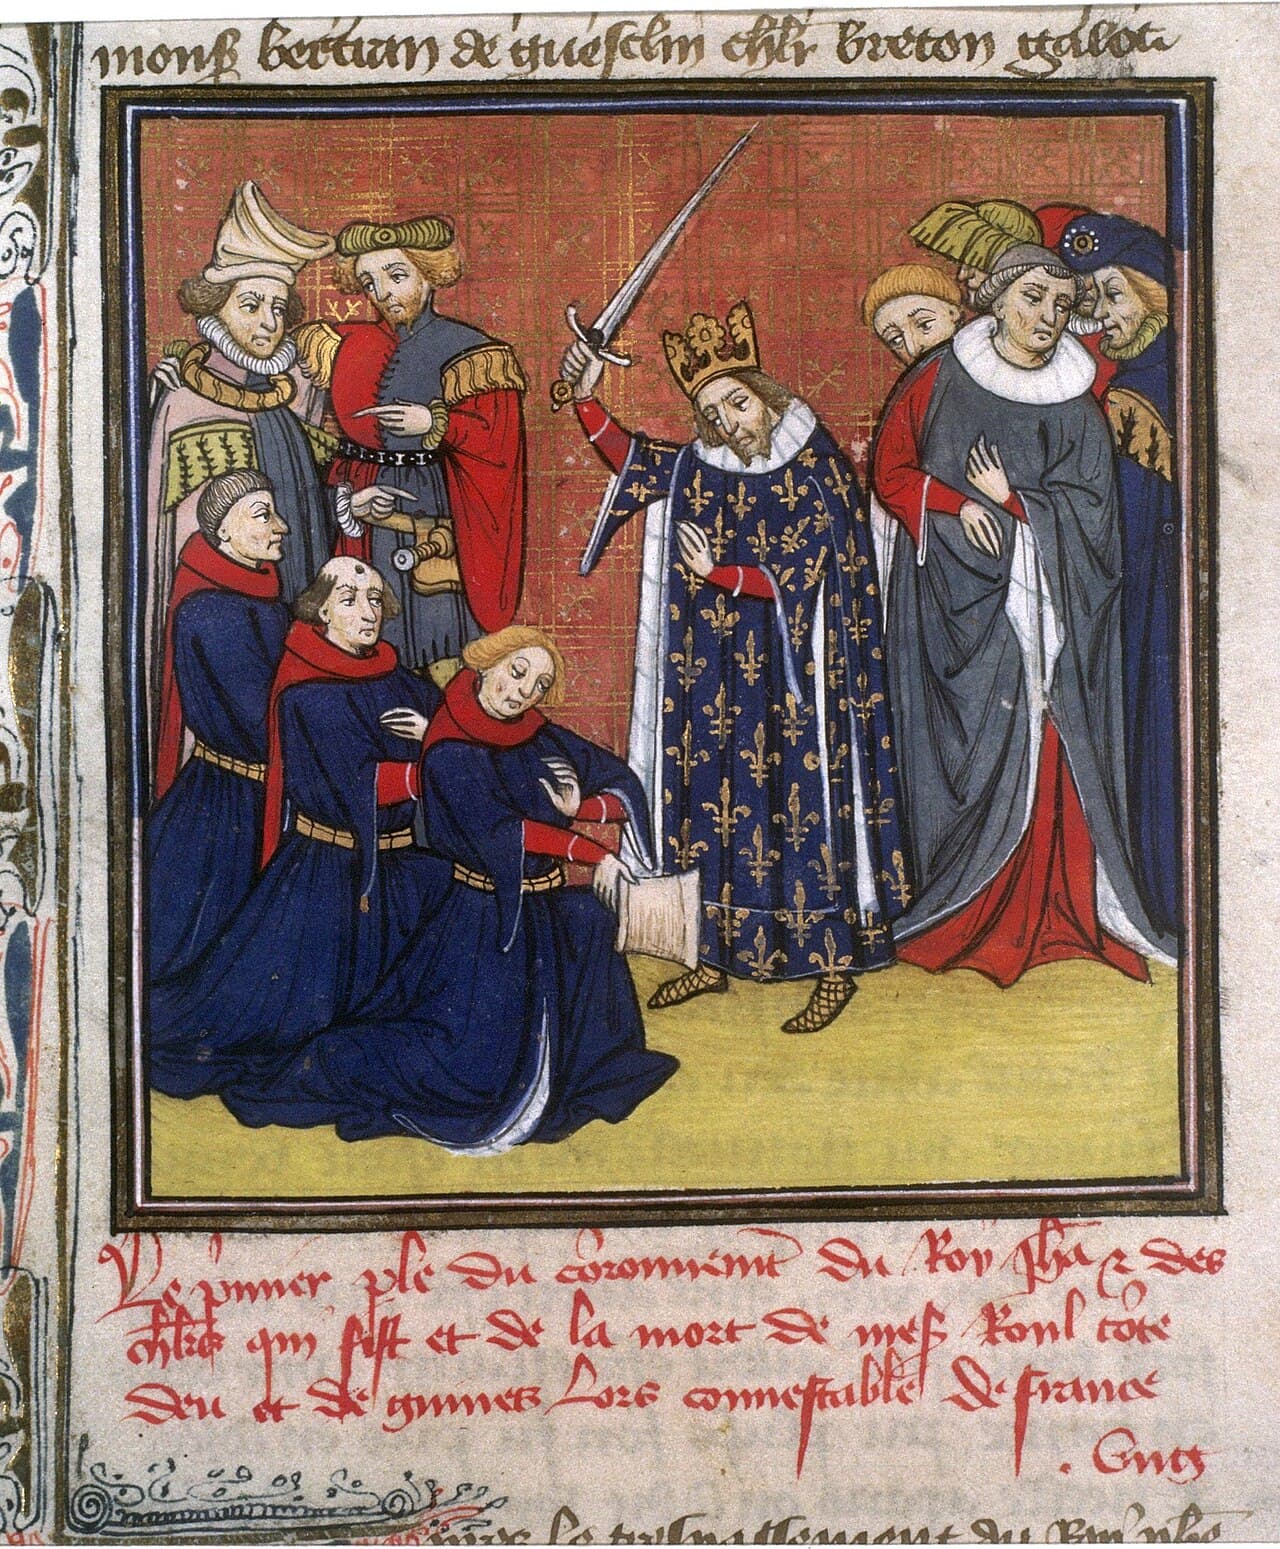 mons bertran de guesclin chlr breton
Le pmier ple du coronnement du Roy Jha & des
chlrs qui fist et de la mort de mess Roul cote
deu et de guines Lors connestable de france
le trespassement du Roy phe